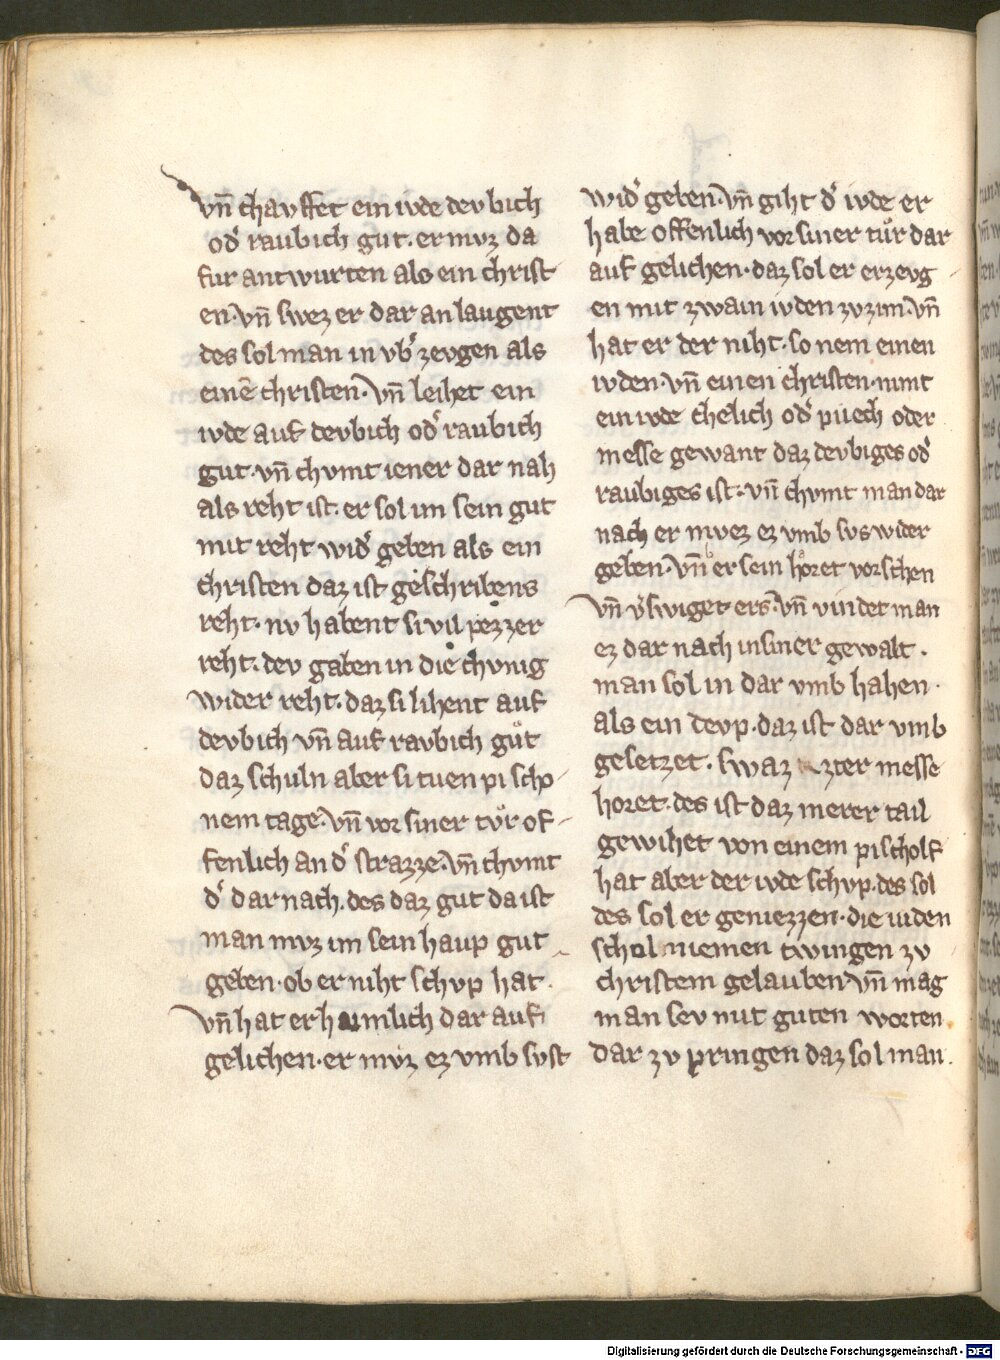 vn̄ chauffet ein iude deubich
od᷑ raubich gut. er muz da
fur antwurten als ein christ
en. vn̄ swez er dar an laugent
des sol man in vb᷑zeugen als
einē christen. vn̄ leihet ein
iude auf deubich od᷑ raubich
gut. vn̄ chumt iener dar nah
als reht ist. er sol im sein gut
mit reht wid᷑ geben als ein
christen daz ist geschribens
reht. nv habent si vil pezzer
reht. dev gaben in die chvnig
wider reht. daz si lihent auf
devbich vn̄ auf ravbich gůt
daz schuln aber si tuen pi scho-
nem tage. vn̄ vor siner tv̊r of-
fenlich an d᷑ strazze. vn̄ chvmt
d᷑ dar nach. des daz gut da ist
man mvz im sein haup gut
geben. ob er niht schvp hat.
vn̄ hat er haimlich dar auf
gelichen. er mvz ez vmb svst
wid᷑ geben. vn̄ giht d᷑ ivde er
habe offenlich vor siner tůr dar
auf gelichen. daz sol er erzevg-
en mit zwain ivden zvzim. vn̄
hat er der niht. so nem einen
ivden. vn̄ einen christen. nimt
ein ivde chelich od᷑ puech oder
messe gewant daz devbiges od᷑
raubiges ist. vn̄ chvmt man dar
nach er mvez ez vmb svs wider
geben. vn̄ er sein hoͤret vorschen
vn̄ v᷑swiget ers. vn̄ vindet man
ez dar nach in siner gewalt.
man sol in dar vmb hahen.
als ein devp. daz ist dar vmb
gesetzet. swaz zter messe
horet. des ist daz merer tail
gewihet von einem pischolf
hat aber der ivde schvp. des sol
des sol er geniezzen. die iuden
schol niemen twingen zv
christem gelauben. vn̄ mag
man sev mit guten worten
dar zv pringen daz sol man.
Digitalisierung gefördert durch die Deutsche Forschungsgemeinschaft - DFG